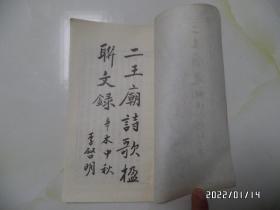 二王廟詩歌楹
聯文録
辛未中秋
李啓明
2022/01/14